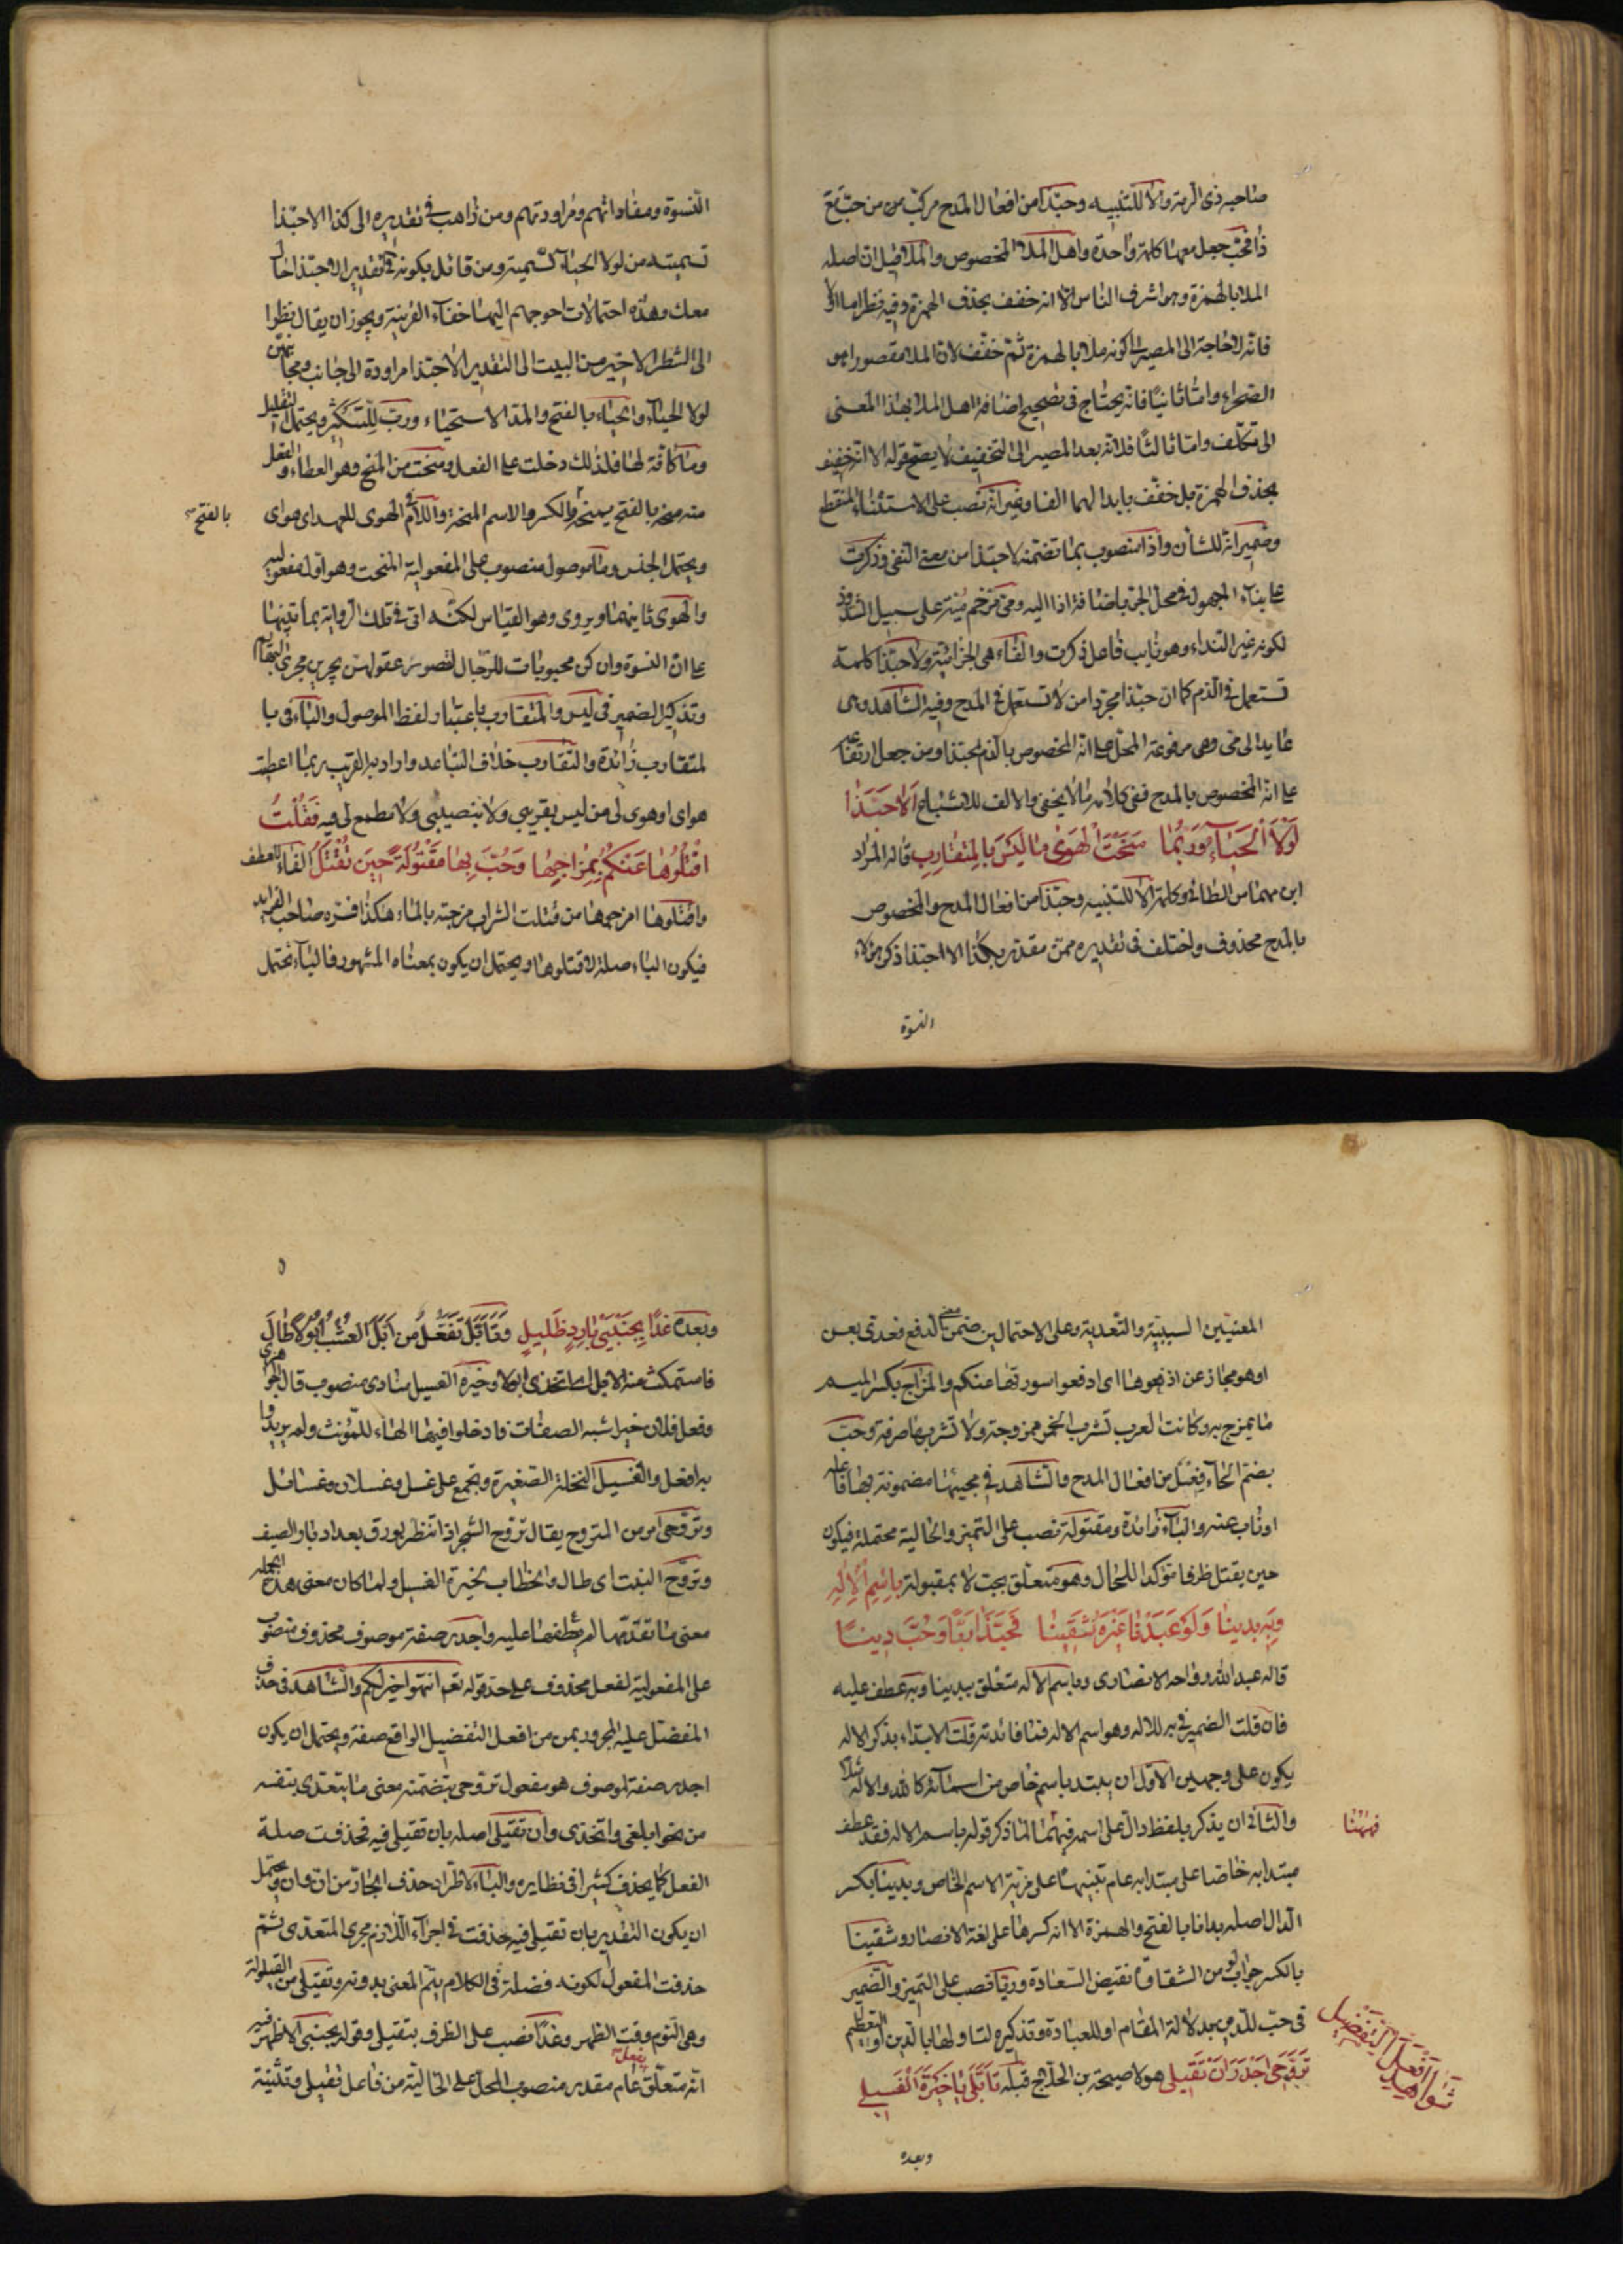 صاحبه ذى الرمة والا للتنبيه وحبّذا من افعال المدح مركب من من حبّ مع
ذا فحبّ جعل معها كلمة واحدة واهل الملا المخصوص والملا قيل ان اصله
الملا بالهمزة وهو اشرف الناس الا انه خفف بحذف الهمزة وفيه نظر اما اولا
فانه لا حاجة الى المصير الى كونه ملا بالهمزة ثم خفّف لان الملا مقصورا هو
الصحراء واما ثانيا فانه يحتاج فى تصحيح اضافة اهل الملا بهذا المعنى
الى تكلّف واما ثالثا فلانه بعد المصير الى التخفيف لا يصح قوله الا انه خفيف
بحذف الهمزة بل خفّف بابدالهما الفا وغير انه نصب على الاستثناء المنقطع
وضمير انه للشأن واذا منصوب بما تضمنه لا حبّذا من معنى النفى وذكرت
على بناء المجهول فى محل الجر باضافة اذا اليه ومى مرخم ميّة على سبيل الشذوذ
لكونه غير النداء وهو نايب فاعل ذكرت والفاء هى الجزائية ولا حبّذا كلمة
تستعمل فى الذم كما ان حبّذا مجردا من لا تستعمل فى المدح وفيه الشاهد وهى
عايد الى مى وهى مرفوعة المحل على انه المخصوص بالذم لحبّذا ومن جعل ارتفاعه
على انه المخصوص بالمدح ففى كلامه ما لا يخفى والالف للاشباع اَلا حَبَّذا
لَوْلَا الْحَيَاءُ وَرُبَّمَا مَنَحْتُ الْهَوٰى مَا لَيْسَ بِالْمُتَقَارِبِ قاله المراد
ابن مهماس الطائى وكلمة الا للتنبيه وحبّذا من افعال المدح والمخصوص
بالمدح محذوف واختلف فى تقديره فمن مقدر هكذا الا حبّذا ذكر هؤلاء
النسوة
النّسوة ومفاواتهم ومراودتهم ومن ذاهب فى تقديره الى كذا الا حبّذا
تسميته من لولا الحياء التسمية ومن قائل بكونه فى تقدير الا حبّذا حالى
معك وهذه احتمالات احوجهم اليها خفاء القرينة ويجوز ان يقال نظرا
الى الشطر الاخير من البيت الى التقدير الا حبّذا مراودة الى جانب ومجا
لولا الحياء والحياء بالفتح والمد الاستحياء وربّ للتكثير ويحتمل التقليل
وما كافة لها فلذلك دخلت على الفعل ومنحت من المنح وهو العطاء والفعل
منه منح بالفتح يمنح والكسر والاسم المنحة واللام فى الهوى للعهد اى هواى
بالفتح
ويحتمل الجنس وما موصول منصوب على المفعولية لمنحت وهو اول مفعوليه
والهوى ثانيهما ويروى وهو القياس لكنه اتى فى تلك الرواية بما تنبيها
على ان النسوة وان كن محبوبات للرجال لقصور عقولهن يجرين مجرى البهايم
وتذكير الضمير فى ليس والمتقارب باعتبار لفظ الموصول والباء فى با
لمتقارب زائدة والتقارب خلاف التباعد واراد به القريب ربما اعطيت
هواى او هوى لى من ليس بقريبى ولا بنصيبى ولا مطمع لى فيه فَقُلْتُ
اقْتُلُوهَا عَنْكُمُ بِمِزَاجِهَا وَحُبَّ بِهَا مَقْتُولَةً حِينَ تُقْتَلُ الفاء للعطف
واقتلوها امزجوها من قتلت الشراب مزجته بالماء هكذا فسّره صاحب الفرايد
فيكون الباء صلة لاقتلوها ويحتمل ان يكون بمعناه المشهور فالباء تحتمل
المعنيين السببيّة والتعدية وعلى الاحتمالين ضمن معنى الدفع فعدى بعن
او هو مجاز عن اذهبوها اى ادفعوا سورتها عنكم والمزاج بكسر الميم
ما يمزج به وكانت العرب تشرب الخمر ممزوجة ولا تشربها صرفة وحبّ
بضم الحاء فعل من افعال المدح والشاهد فى مجيئها مضمومة بها فاعله
او ناب عنه والباء زائدة ومقتولة نصب على التميز والحالية محتملة فيكون
حين يقتل ظرفا مؤكدا للحال وهو متعلق بحبّ لا بمقبولة بِاسْمِ الْاِلٰهِ
وَبِهِ بَدِينَا وَلَوْ عَبَدْنَا غَيْرَهُ شَقِينَا فَحَبَّذَا رَبًّا وَحُبَّ دِينًا
قاله عبد الله رواحه الانصارى وباسم الاله متعلق ببدينا وبه عطف عليه
فان قلت الضمير فى به للاله وهو اسم الاله فما فائدته قلت الابتداء بذكر الاله
يكون على وجهين الاول ان يبتدء باسم خاص من اسمائه كالله والاله مثلا
والثانى ان يذكر بلفظ دال على اسمه فههنا لما ذكر قوله باسم الاله فقد عطف
فههنا
مبتدا به خاصا على مبتدا به عام تنبيها على مزية الاسم الخاص وبدينا بكسر
الدال اصله بدانا بالفتح والهمزة الا انه كسرها على لغة الانصار وشقينا
بالكسر جواب لو من الشقاوة نقيض السعادة وربّا نصب على التميز والضمير
فى حبّ للدين بدلالة المقام او للعبادة وتذكيره لتاولها بالدين او التعظيم
شواهد افعل التفضيل
تَرَوَّحِى اَجْدَرَ اَنْ تَقِيلِى هو لاحيحة بن الحلاج قبله تَاَبَّرِى يَا خَيْرَةَ الْفَسِيلِ
وبعده
وبعده غَدًا بِجَنْبَىْ بَارِدٍ ظَلِيلٍ وتَاَبَّل تفعّل من ابل العشب ابولا طال
فاستمكث منه الابل خيرة الفسيل منادى منصوب قال الجوهرى
وفعل فلان خير اشبه الصفات فادخلوا فيها الهاء للمؤنث ولم يريدوا
به افعل والفسيل النخلة الصغيرة ويجمع على غسل وغسلان وغسائل
وتروّحى امر من التروح يقال تروّح الشجر اذا تفطر بورق بعد ادبار الصيف
وتروّح النبت اى طال والخطاب لخيرة الفسيل ولما كان معنى هذه الجملة
معنى ما تقدّمها لم يعطفها عليه واجدر صفة موصوف محذوف منصوب
على المفعولية لفعل محذوف على حد قوله تع انتهوا خيرا لكم والشاهد فى حذف
المفضل عليه المجرور بمن من افعل التفضيل الواقع صفة ويحتمل ان يكون
اجدر صفة لموصوف هو مفعول تروحى بتضمنه معنى ما يتعدى بنفسه
من نحو ابلغى واتخذى وان تقيلى اصله بان تقيلى فيه فحذفت صلة
الفعل كما يحذف كثيرا فى نظايره والباء لاطّراد حذف الجار من انّ وان ويحتمل
ان يكون التقدير بان تقيلى فيه فحذفت فى اجراء اللازم مجرى المتعدى ثم
حذفت المفعول لكونه فضلة فى الكلام يتمّ المعنى بدونه وتقيلى من القيلولة
وهى النوم وقت الظهر وغدا نصب على الظرف بتقيلى وقوله بجنبى الاظهر فيه
انه متعلق بفعل عام مقدر منصوب المحل على الحالية من فاعل تقيلى وتثنية